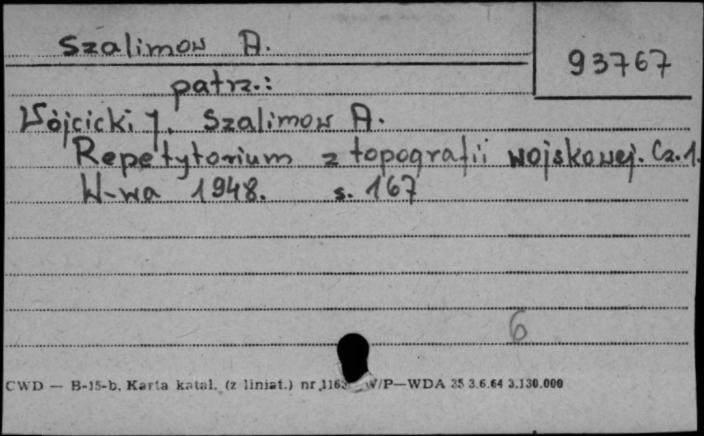 Szalimow A.
93767
patrz.:
Wójcicki J. Szalimow A.
Repetytorium z topografii wojskowej. Cz. 1.
W-wa 1948. s. 167
6
CWD — B-15-b. Karta katal. (z liniat.) nr W/P—WDA 35 3.6.64 3.130.000